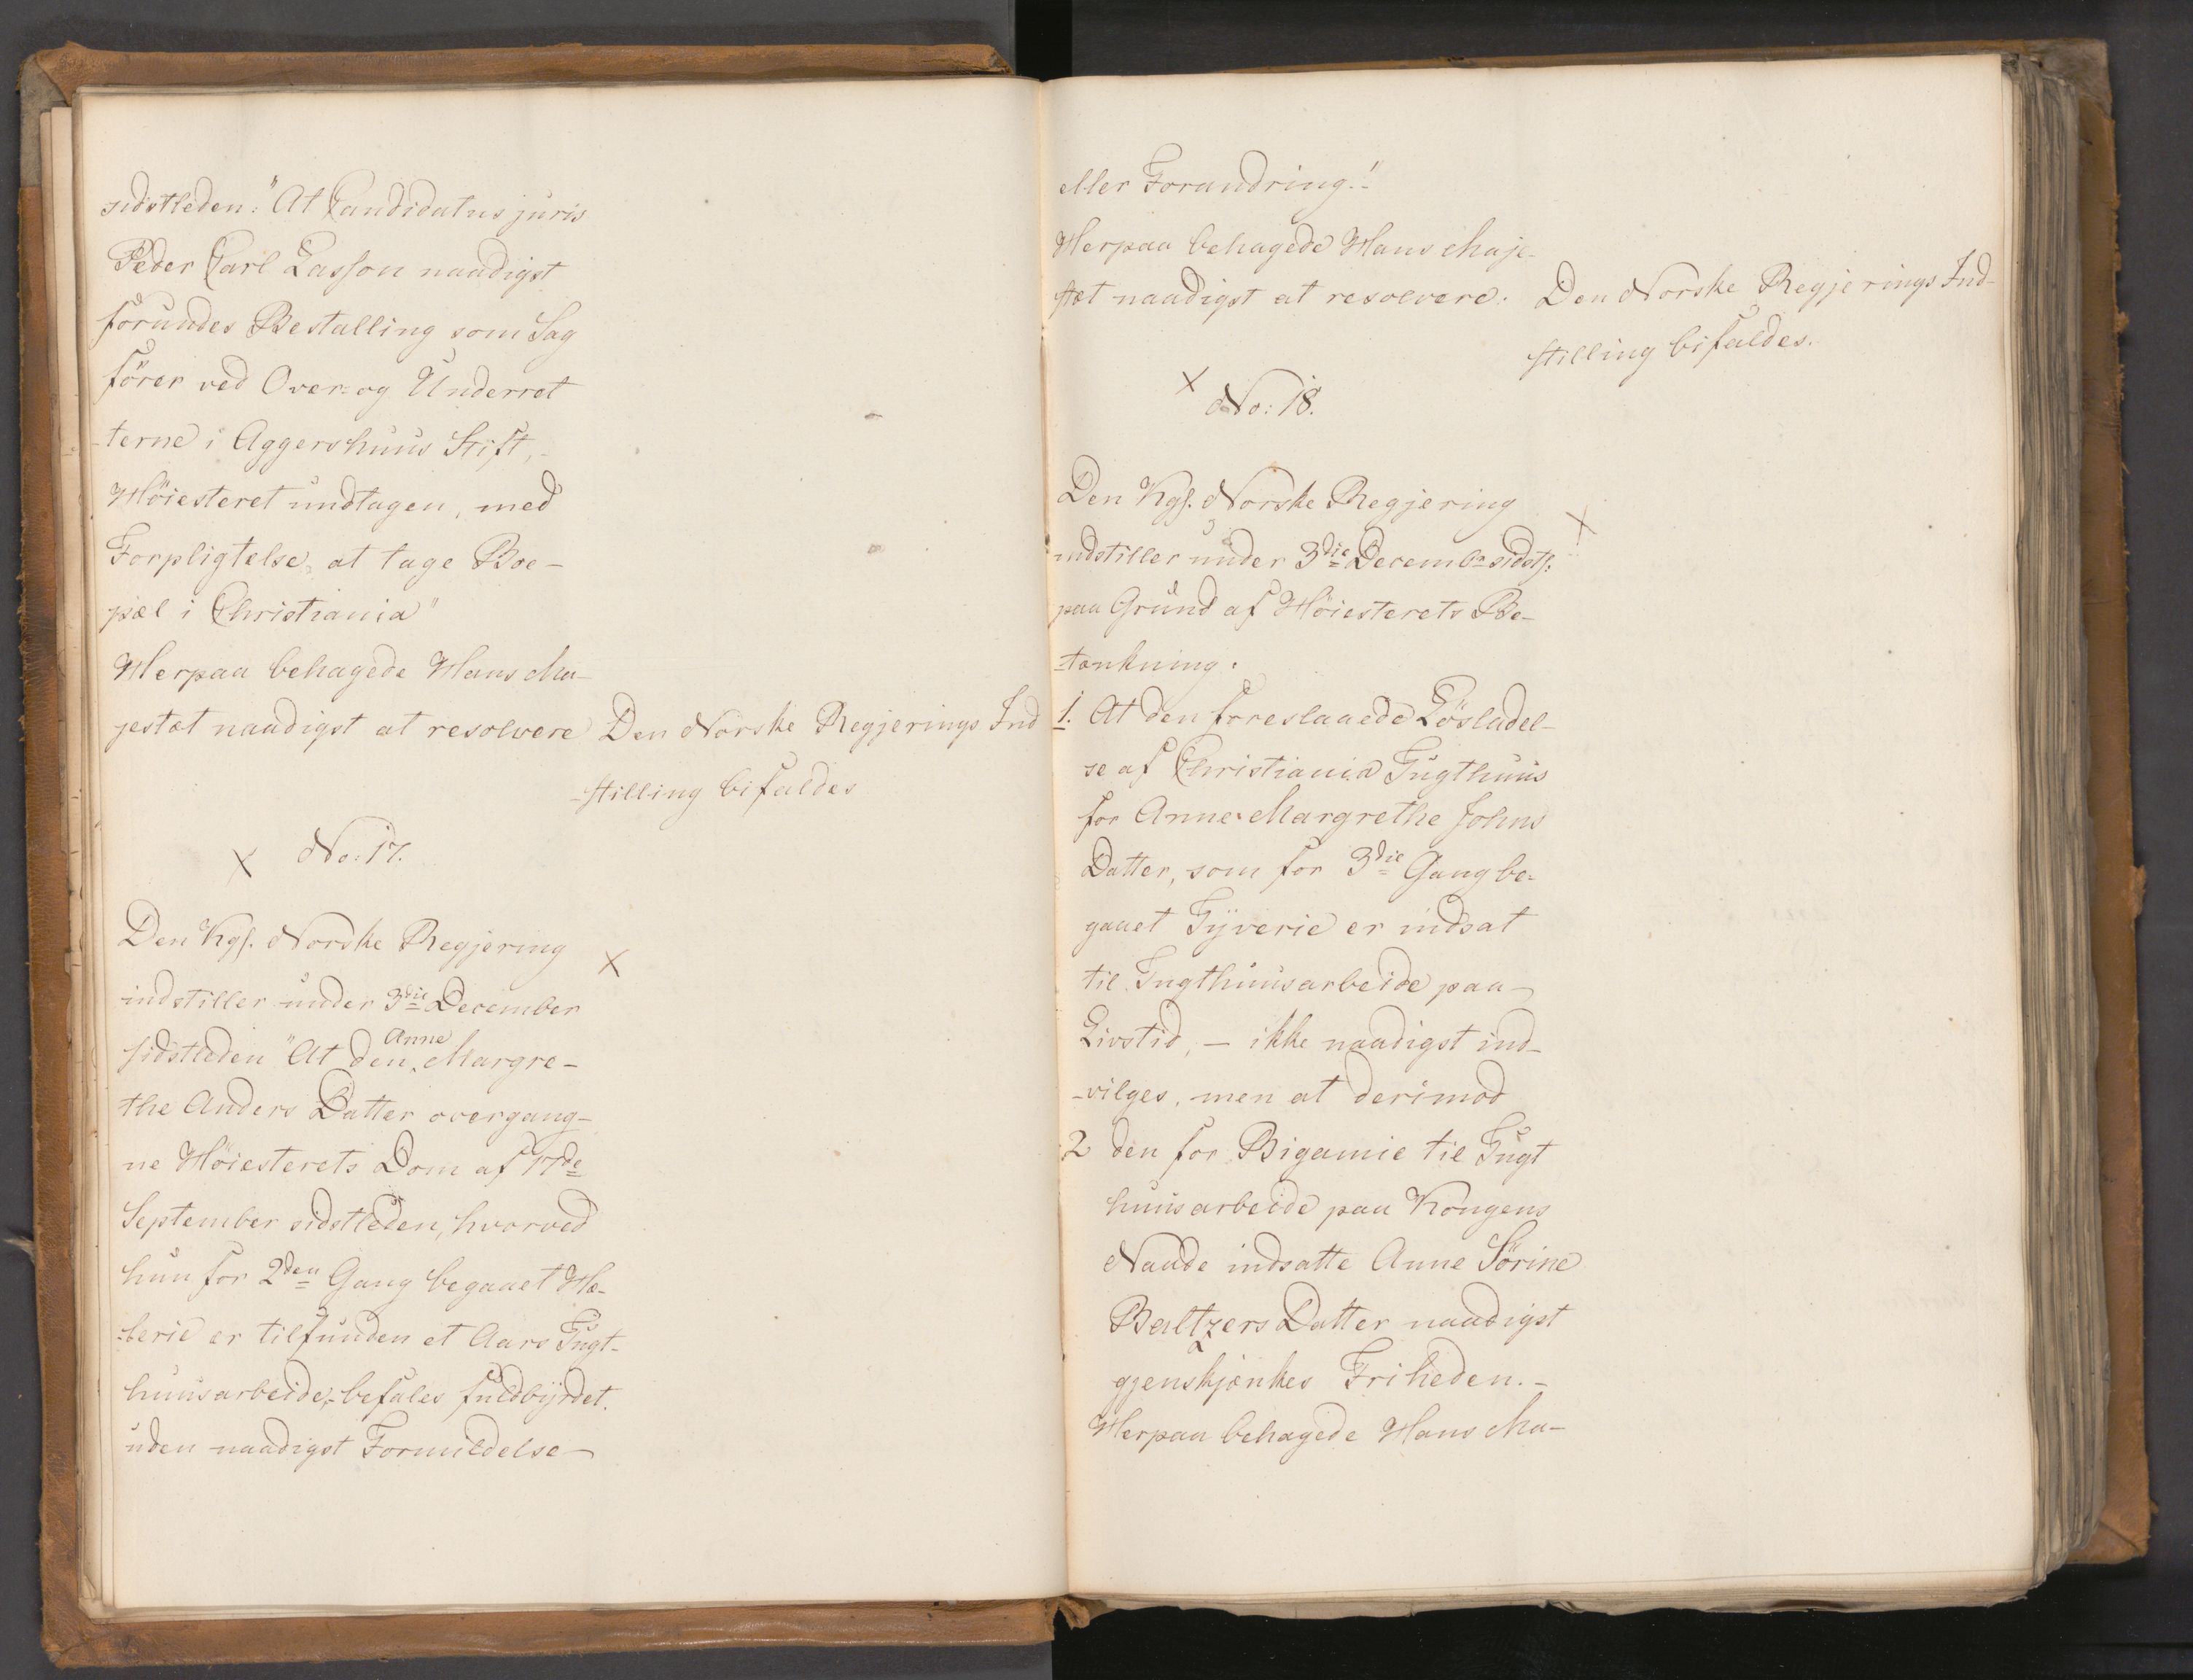 sidstleden: "At Candidatus juris
Peder Carl Lasson naadigst
forundes Bestalling som Sag
förer ved Over- og Underret
-terne i Aggershuus Stift,-
Höiesteret undtagen, med
Forpligtelse, at tage Boe-
pæl i Christiania"
Herpaa behagede Hans Ma-
jestæt naadigst at resolvere Den Norske Regjerings Ind
-stilling bifaldes
X No: 17.
Den Kgl. Norske Regjering X
indstiller under 3die December
sidstleden "At den Anne Margre-
the Anders Datter overgang-
ne Höiesterets Dom af 17de
September sidstleden, hvorved
hun for 2den Gang begaaet Hæ-
-lerie er tilfunden et Aars Tugt-
huusarbeide,- befales fuldbyrdet.
uden naadigst Formildelse
eller Forandring."
Herpaa behagede Hans Maje-
stæt naadigst at resolvere: Den Norske Regjerings Ind-
stilling bifaldes.
X No: 18.
Den Kgl. Norske Regjering X
indstiller under 3die Decembr sidstl:
paa Grund af Höiesterets Be-
-tænkning.
1. At den foreslaaede Lösladel-
se af Christiania Tugthuus
for Anne Margrethe Johns
Datter, som for 3die Gang be-
gaaet Tyverie er indsat
til Tugthuusarbeide paa
Livstid, - ikke naadigst ind-
-vilges, men at derimod
2 den for Bigamie til Tugt
huusarbeide paa Kongens
Naade indsatte Anne Sörine
Baltzers Datter naadigst
gjenskjænkes Friheden.-
Herpaa behagede Hans Ma-